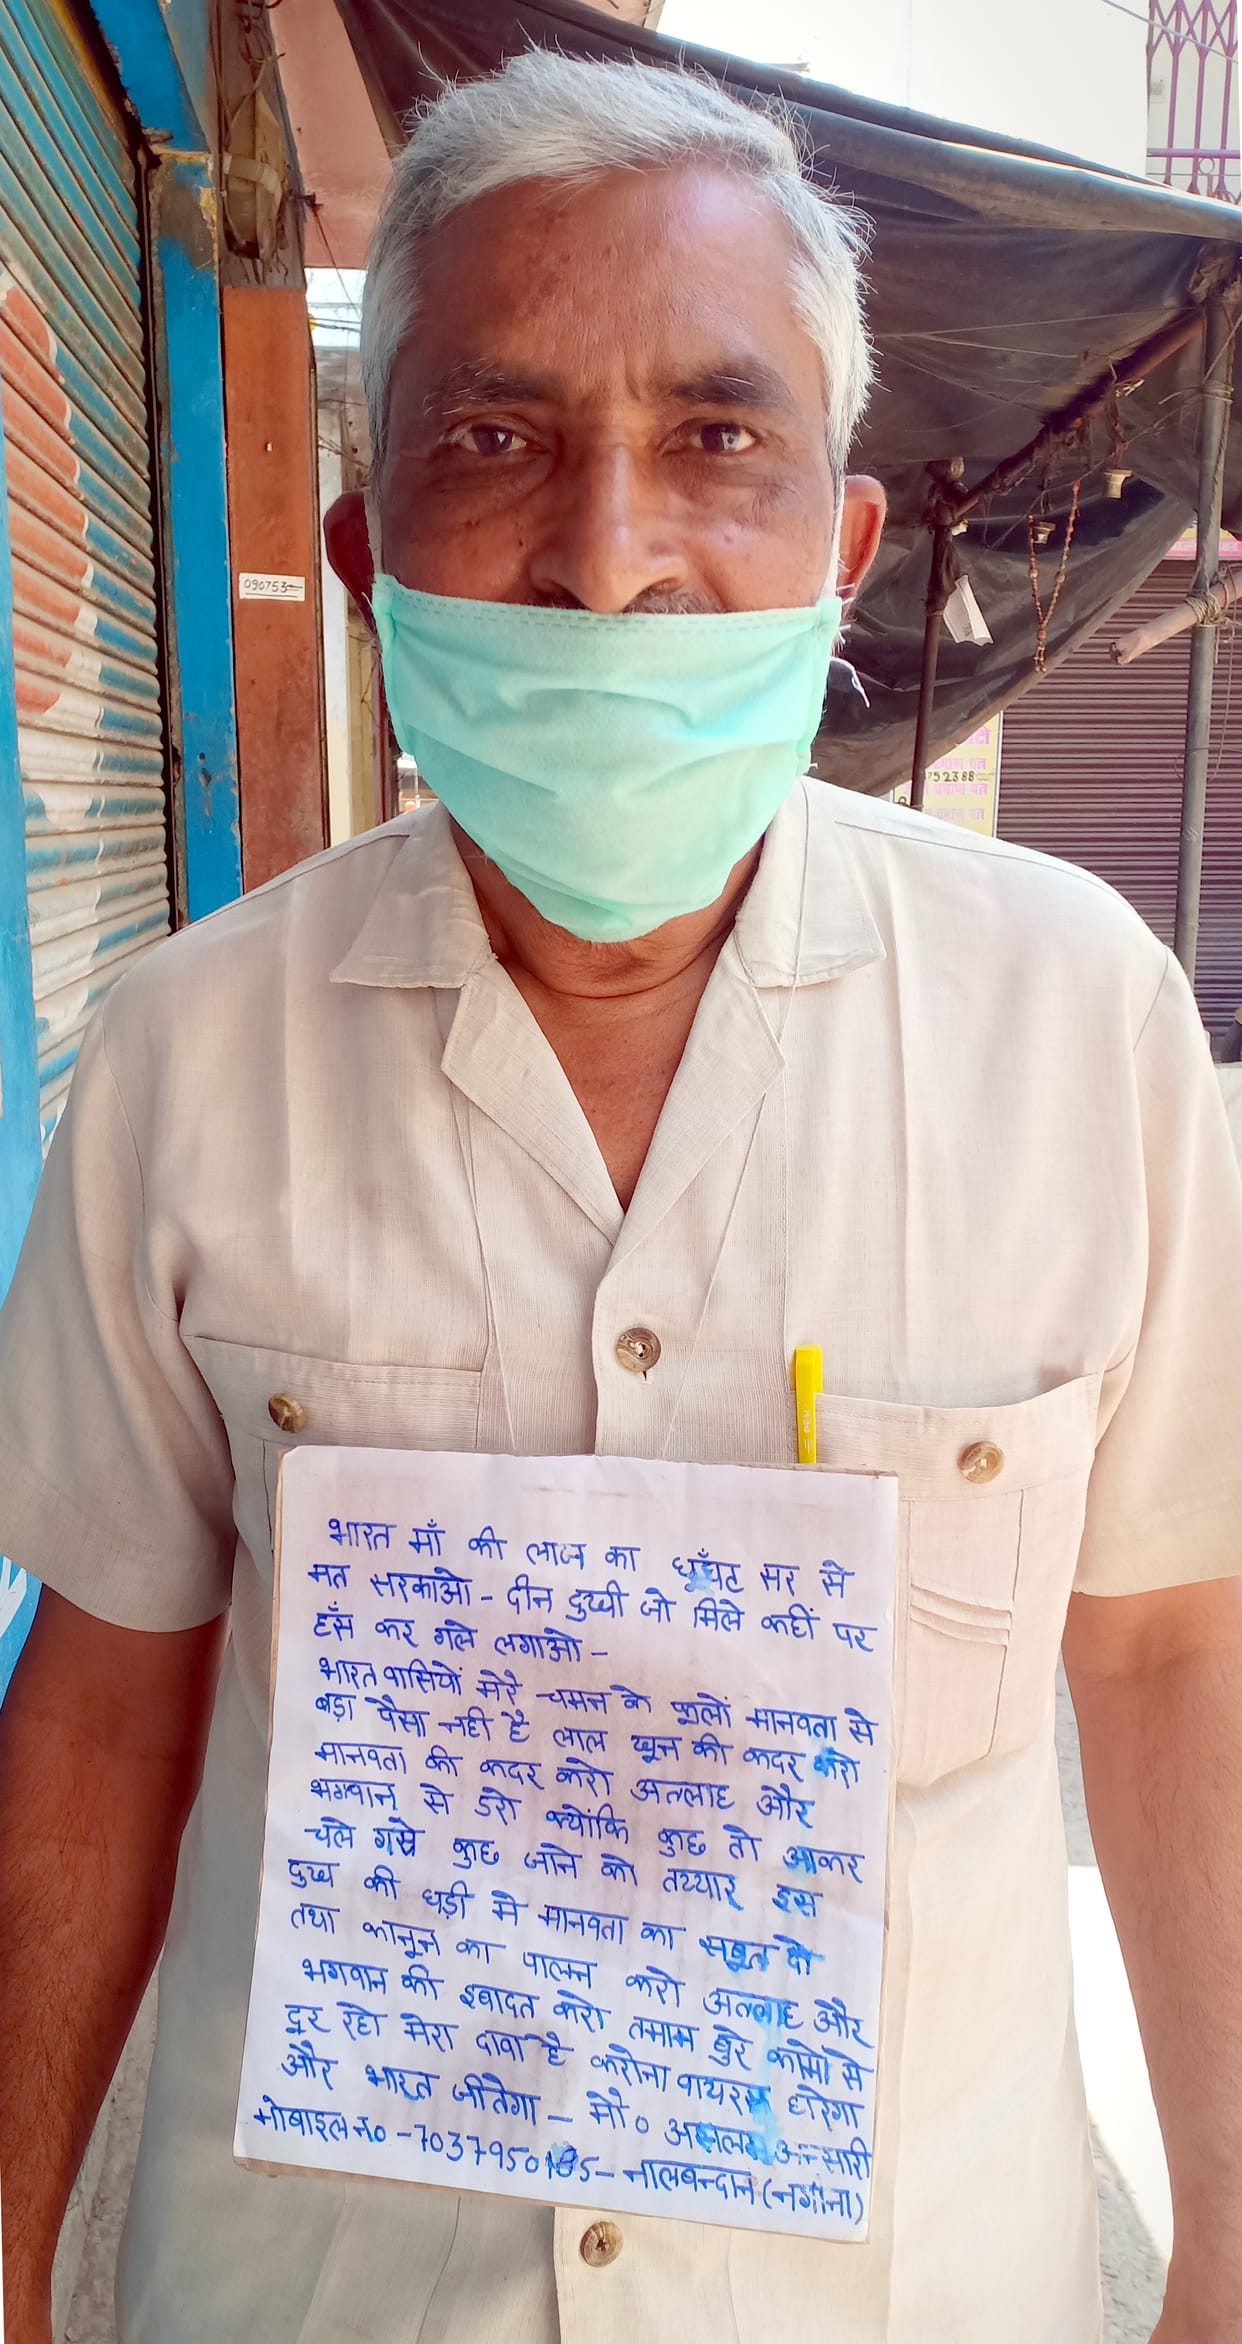 090753
752388
प्रमाण पत्र
भारत माँ की लाज का घूँघट सर से
मत सरकाओ - दीन दुखी जो मिले कहीं पर
हँस कर गले लगाओ -
भारत वासियों मेरे चमन के फूलों मानवता से
बड़ा पैसा नही है लाल खून की कदर करो
मानवता की कदर करो अल्लाह और
भगवान से डरो क्योंकि कुछ तो आकर
चले गये कुछ जाने को तय्यार इस
दुख की घड़ी मे मानवता का सबूत दो
तथा कानून का पालन करो अल्लाह और
भगवान की इबादत करो तमाम बुरे कामो से
दूर रहो मेरा दावा है करोना वायरस हारेगा
और भारत जीतेगा - मौ० असलम अन्सारी
मोबाइल नं० - 7037950185 - नालबन्दान (नगीना)